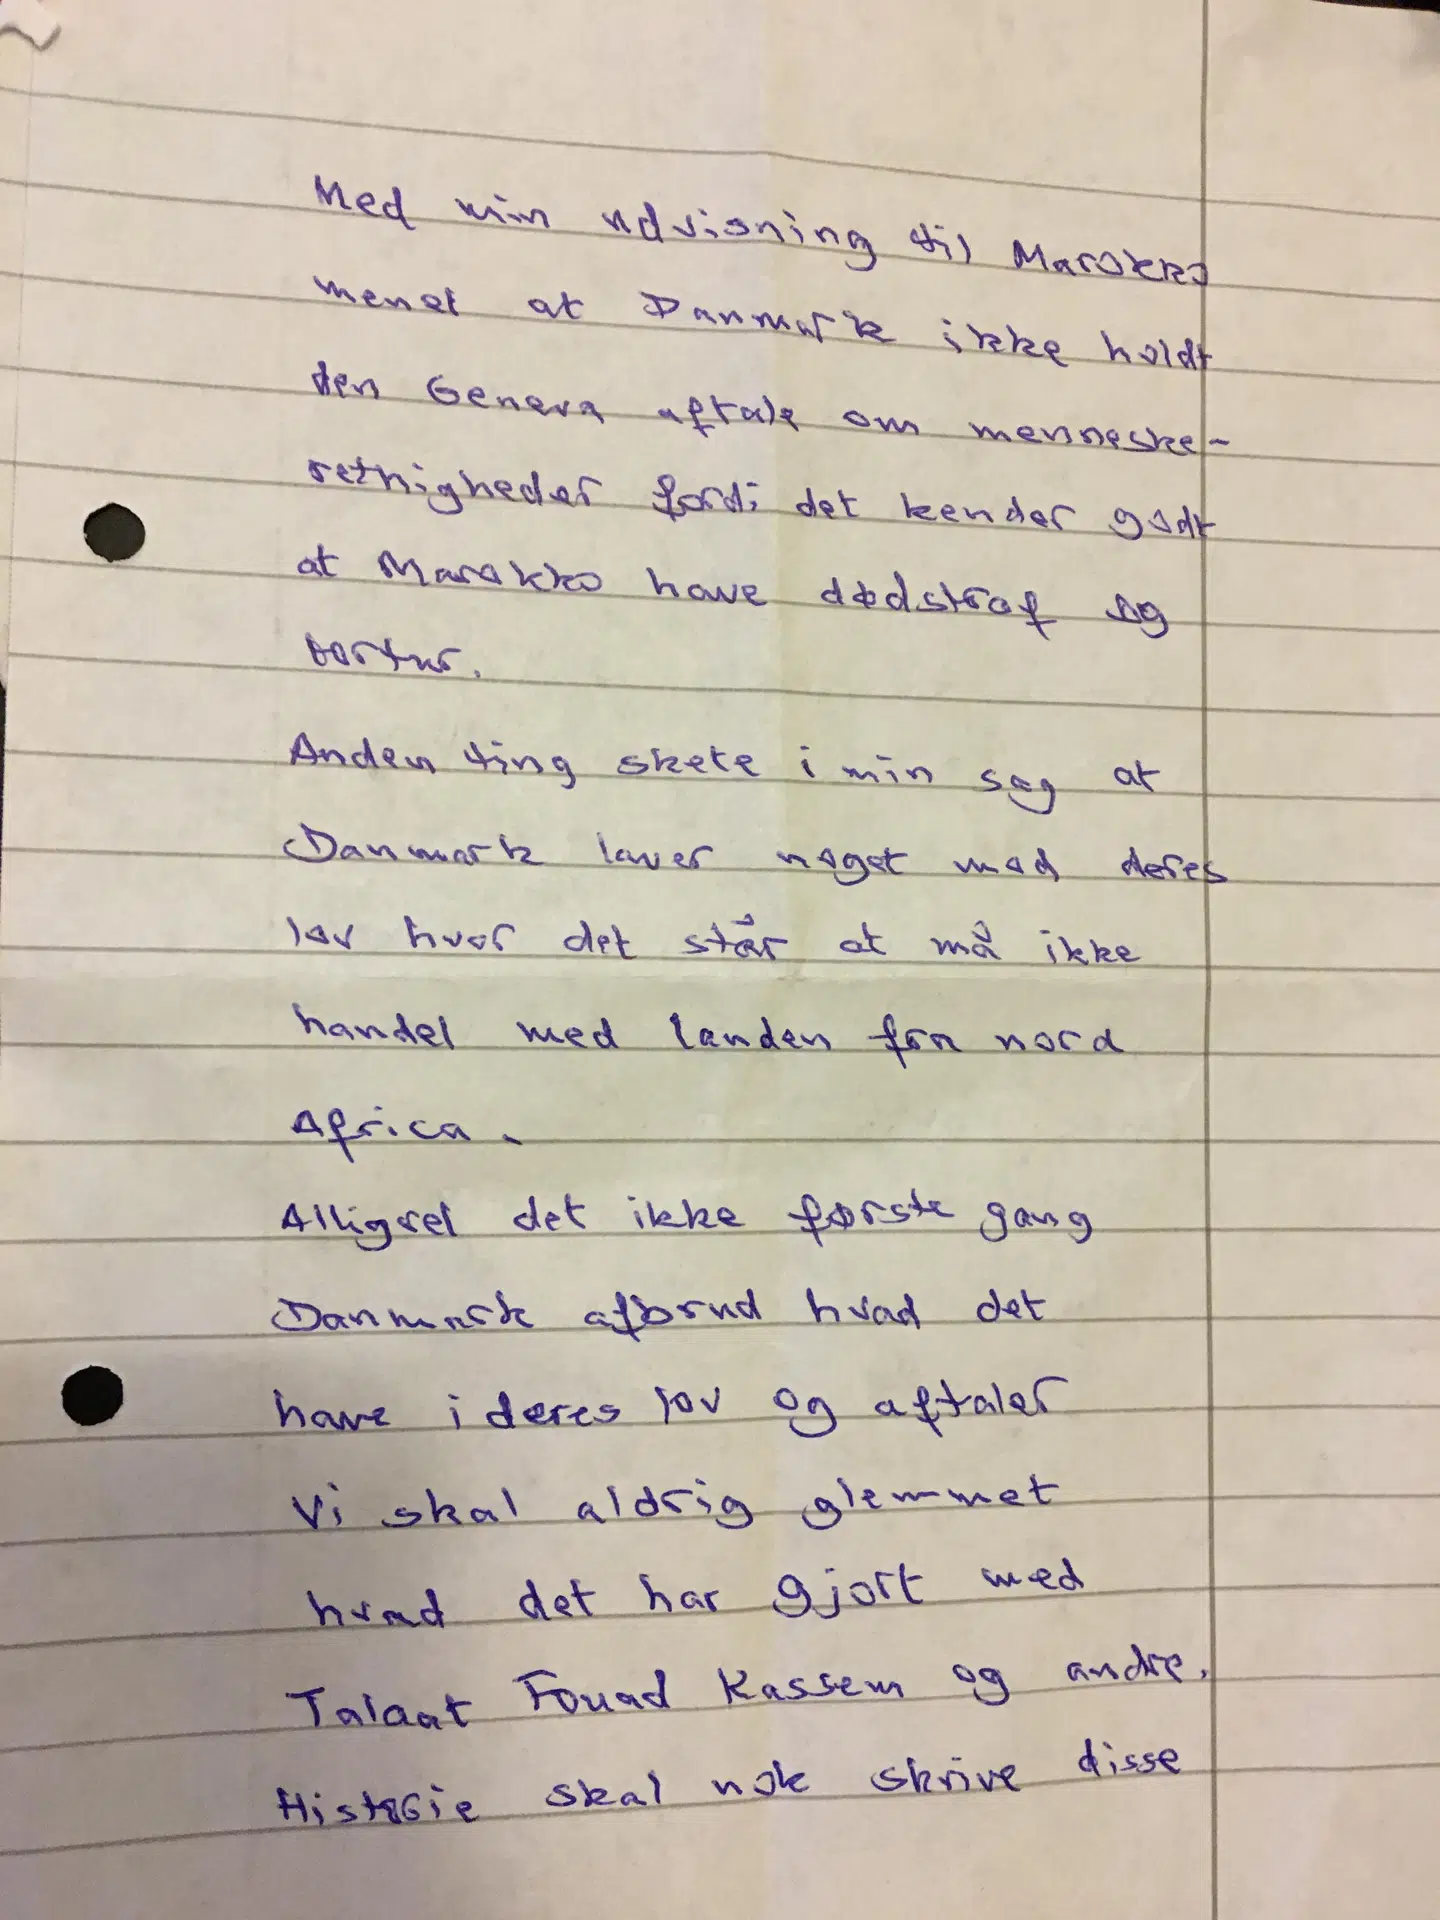 Med min udvisning til Marokko
menet at Danmark ikke holdt
den Geneva aftale om menneske-
rethigheder fordi det kender godt
at Marokko have dødstraf og
tortur.
Anden ting skete i min sag at
Danmark laver noget mod deres
lov hvor det står at må ikke
handel med landen fra nord
Africa.
Alligvel det ikke første gang
Danmark afbrud hvad det
have i deres lov og aftaler
Vi skal aldrig glemmet
hvad det har gjort med
Talaat Fouad Kassem og andre.
Historie skal nok skrive disse